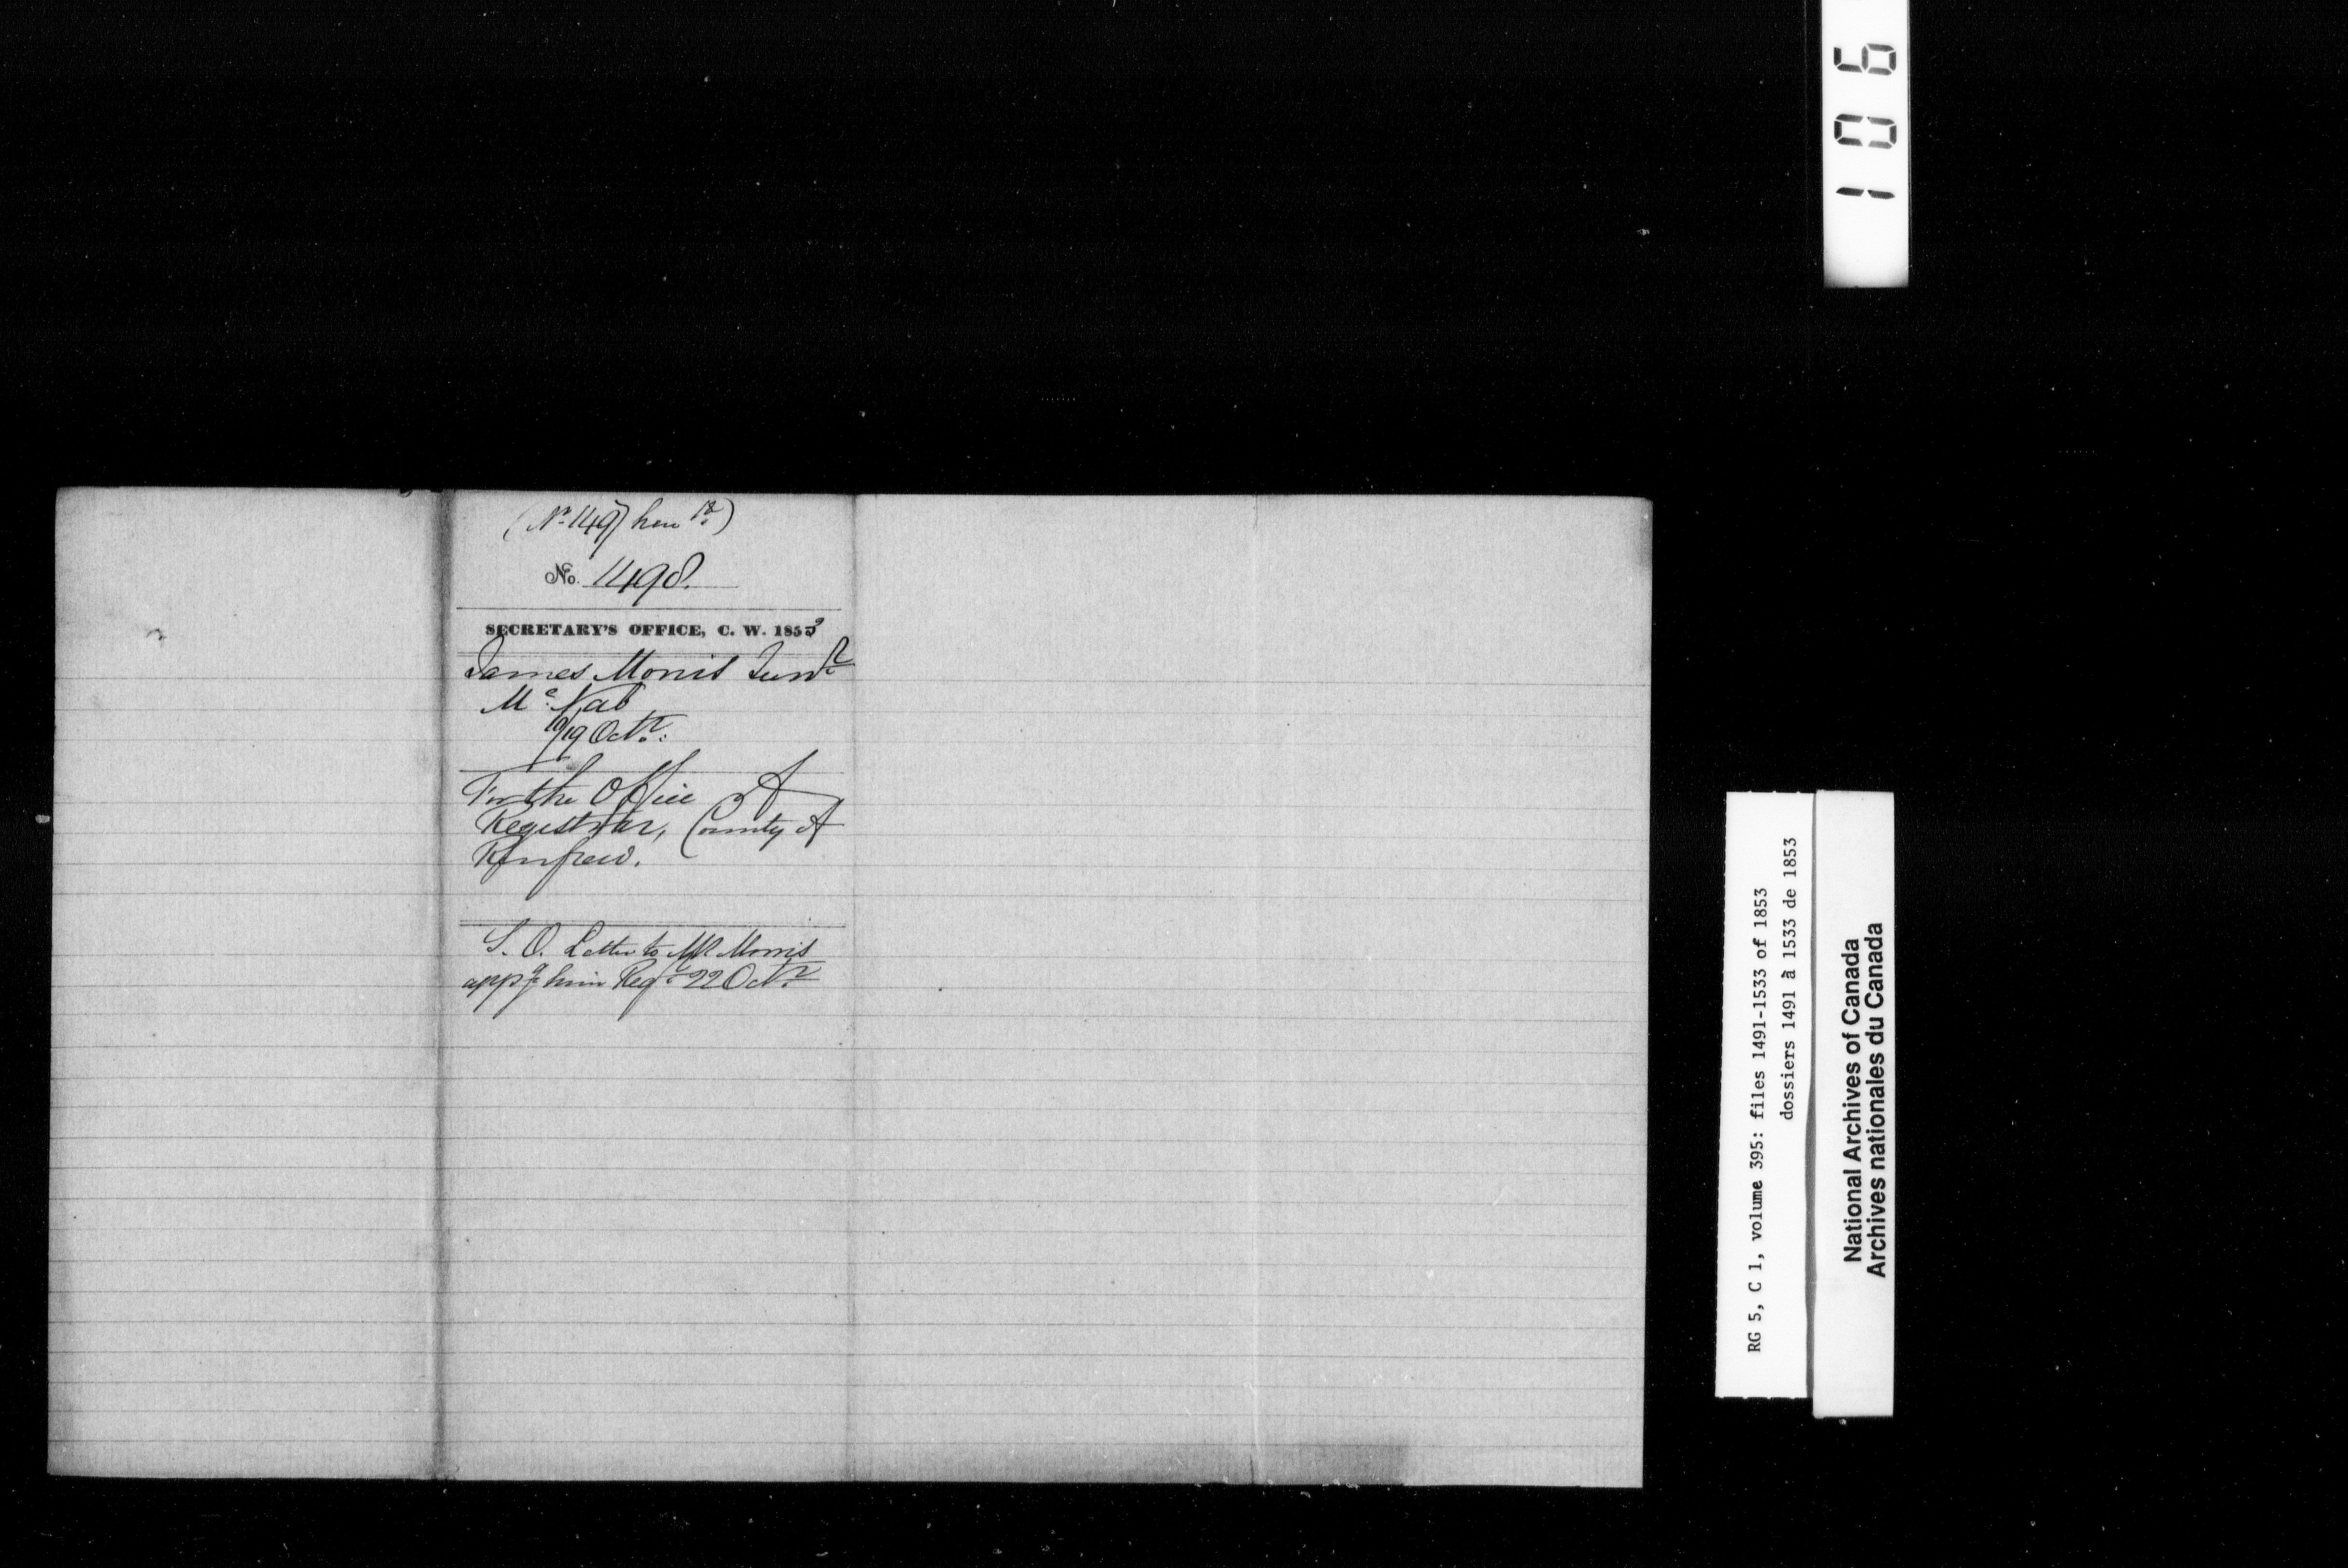 (No. 1497 herein)
No. 1498.
SECRETARY'S OFFICE, C. W. 1853
James Morris Junr
McNab
19 Octr.
For the Office of
Registrar, County of
Renfrew.
S. O. Letter to Mr Morris
appg him Regr 22 Octr
106
RG 5, C 1, volume 395: files 1491-1533 of 1853
dossiers 1491 à 1533 de 1853
National Archives of Canada
Archives nationales du Canada